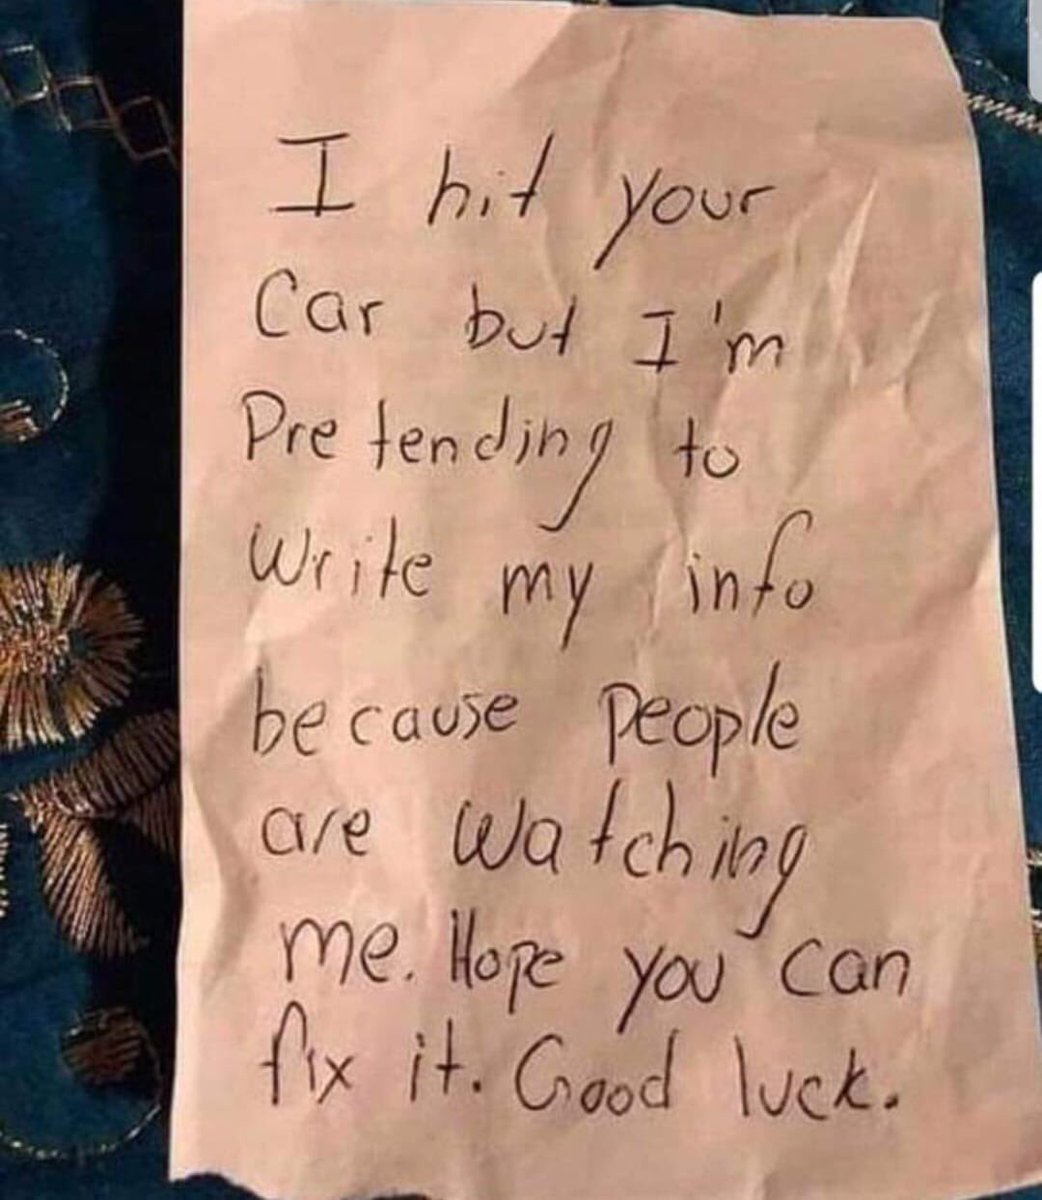 I hit your
Car but I'm
Pretending to
Write my info
because people
are watching
me. Hope you can
fix it. Good luck.